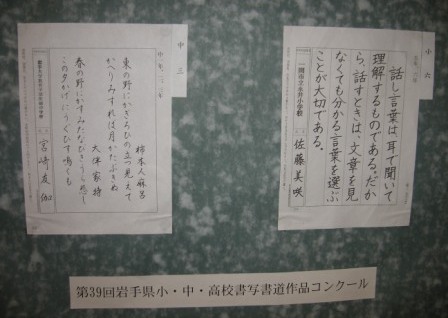 小六
話し言葉は、耳で聞いて
理解するものである。だか
ら、話すときは、文章を見
なくても分かる言葉を選ぶ
ことが大切である。
一関市立永井小学校
佐藤美咲
中三
柿本人麻呂
東の野にかぎろひの立つ見えて
かへりみすれば月かたぶきぬ
大伴家持
春の野にかすみたなびきうら悲し
この夕かげにうぐひす鳴くも
宮崎友伽
第39回岩手県小・中・高校書写書道作品コンクール